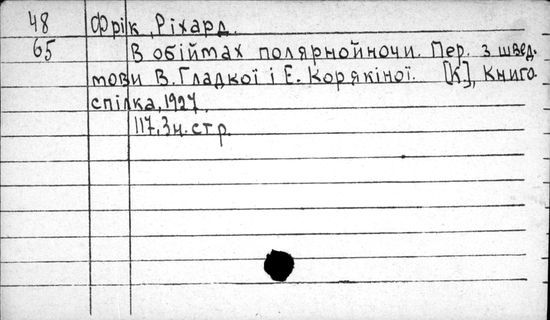 48 Фрік, Ріхард.
65 В обіймах полярнойночи. Пер. з швед-
мови В. Гладкої і Е. Корякіної. [К], Книго-
спілка, 1927.
117, 3 н. стр.